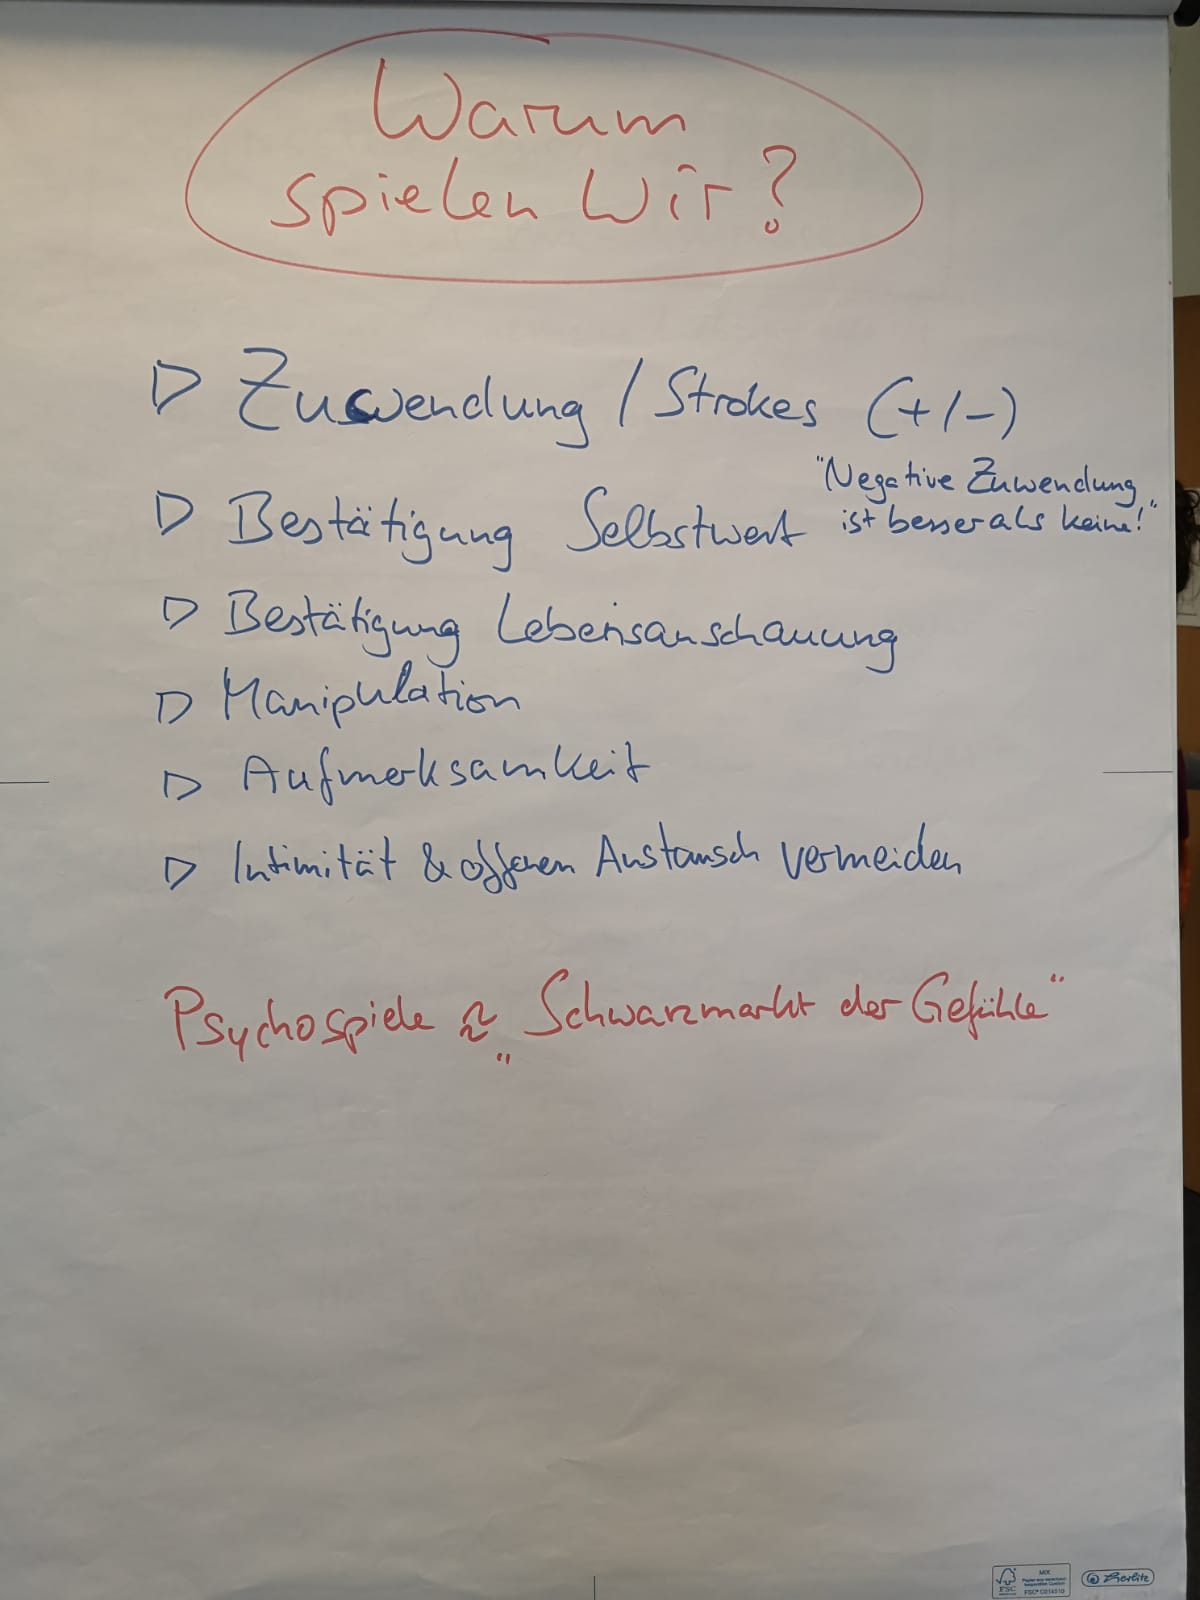 Warum
spielen Wir?
▷ Zuwendung / Strokes (+/-)
"Negative Zuwendung
ist besser als keine!"
▷ Bestätigung Selbstwert
▷ Bestätigung Lebensanschauung
▷ Manipulation
▷ Aufmerksamkeit
▷ Intimität & offenen Austausch vermeiden
Psychospiele ≈ „Schwarzmarkt der Gefühle"
FSC
MIX
FSC® C014510
Herlitz